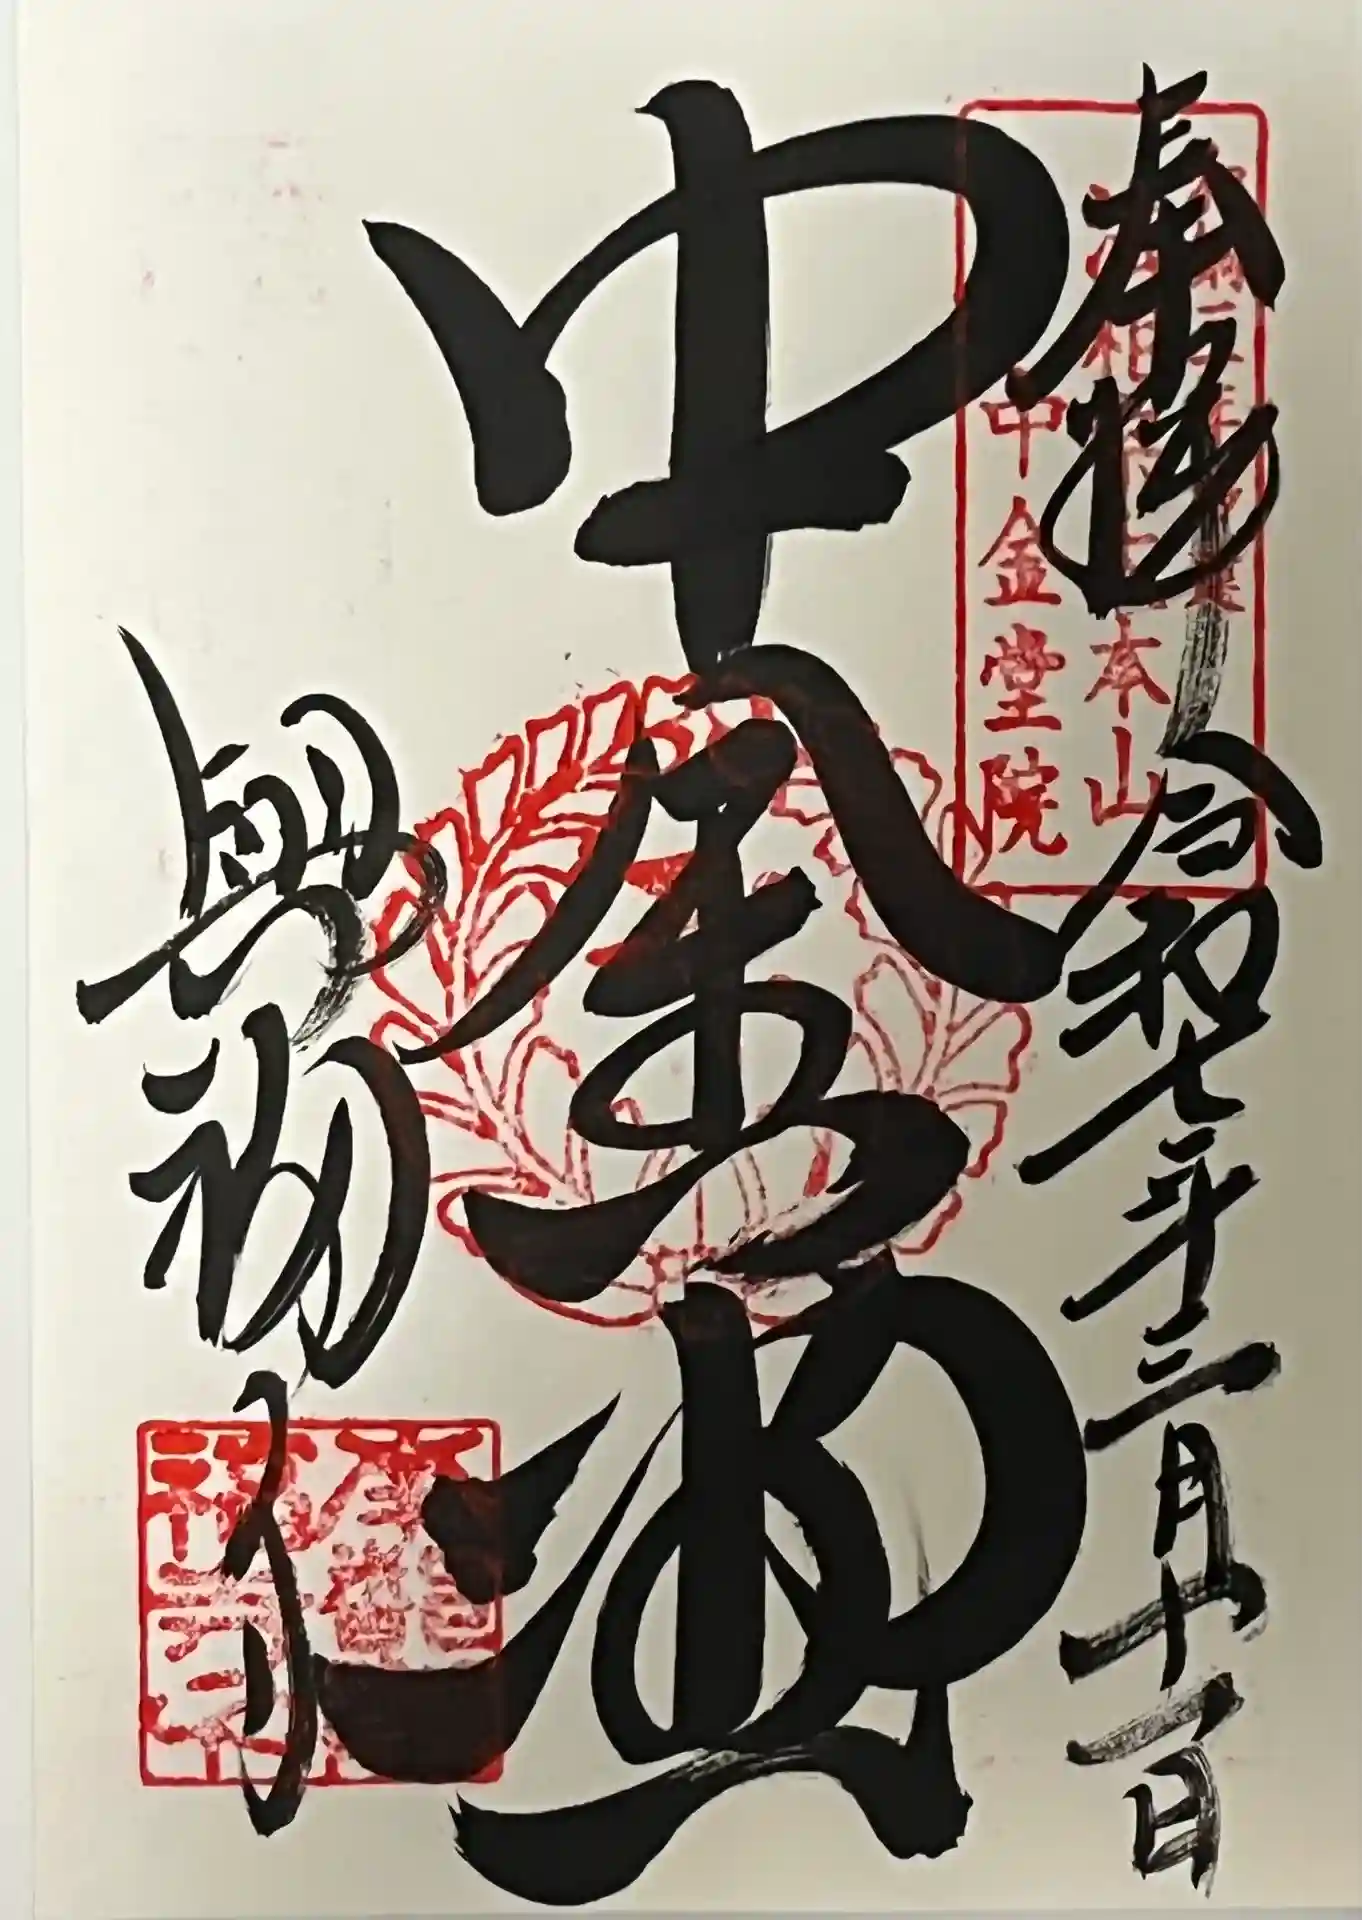 奉拝 令和七年三月十一日
法相宗大本山
中金堂院
中金堂
興福寺